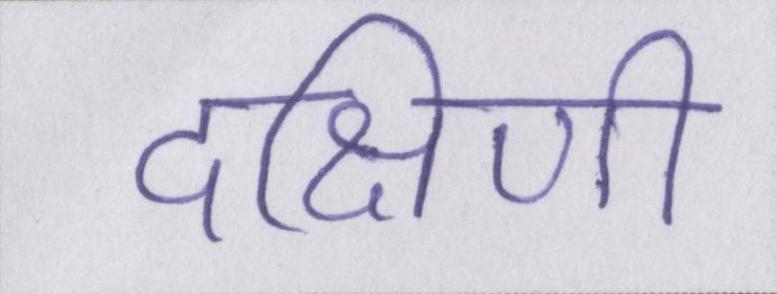 दक्षिणी